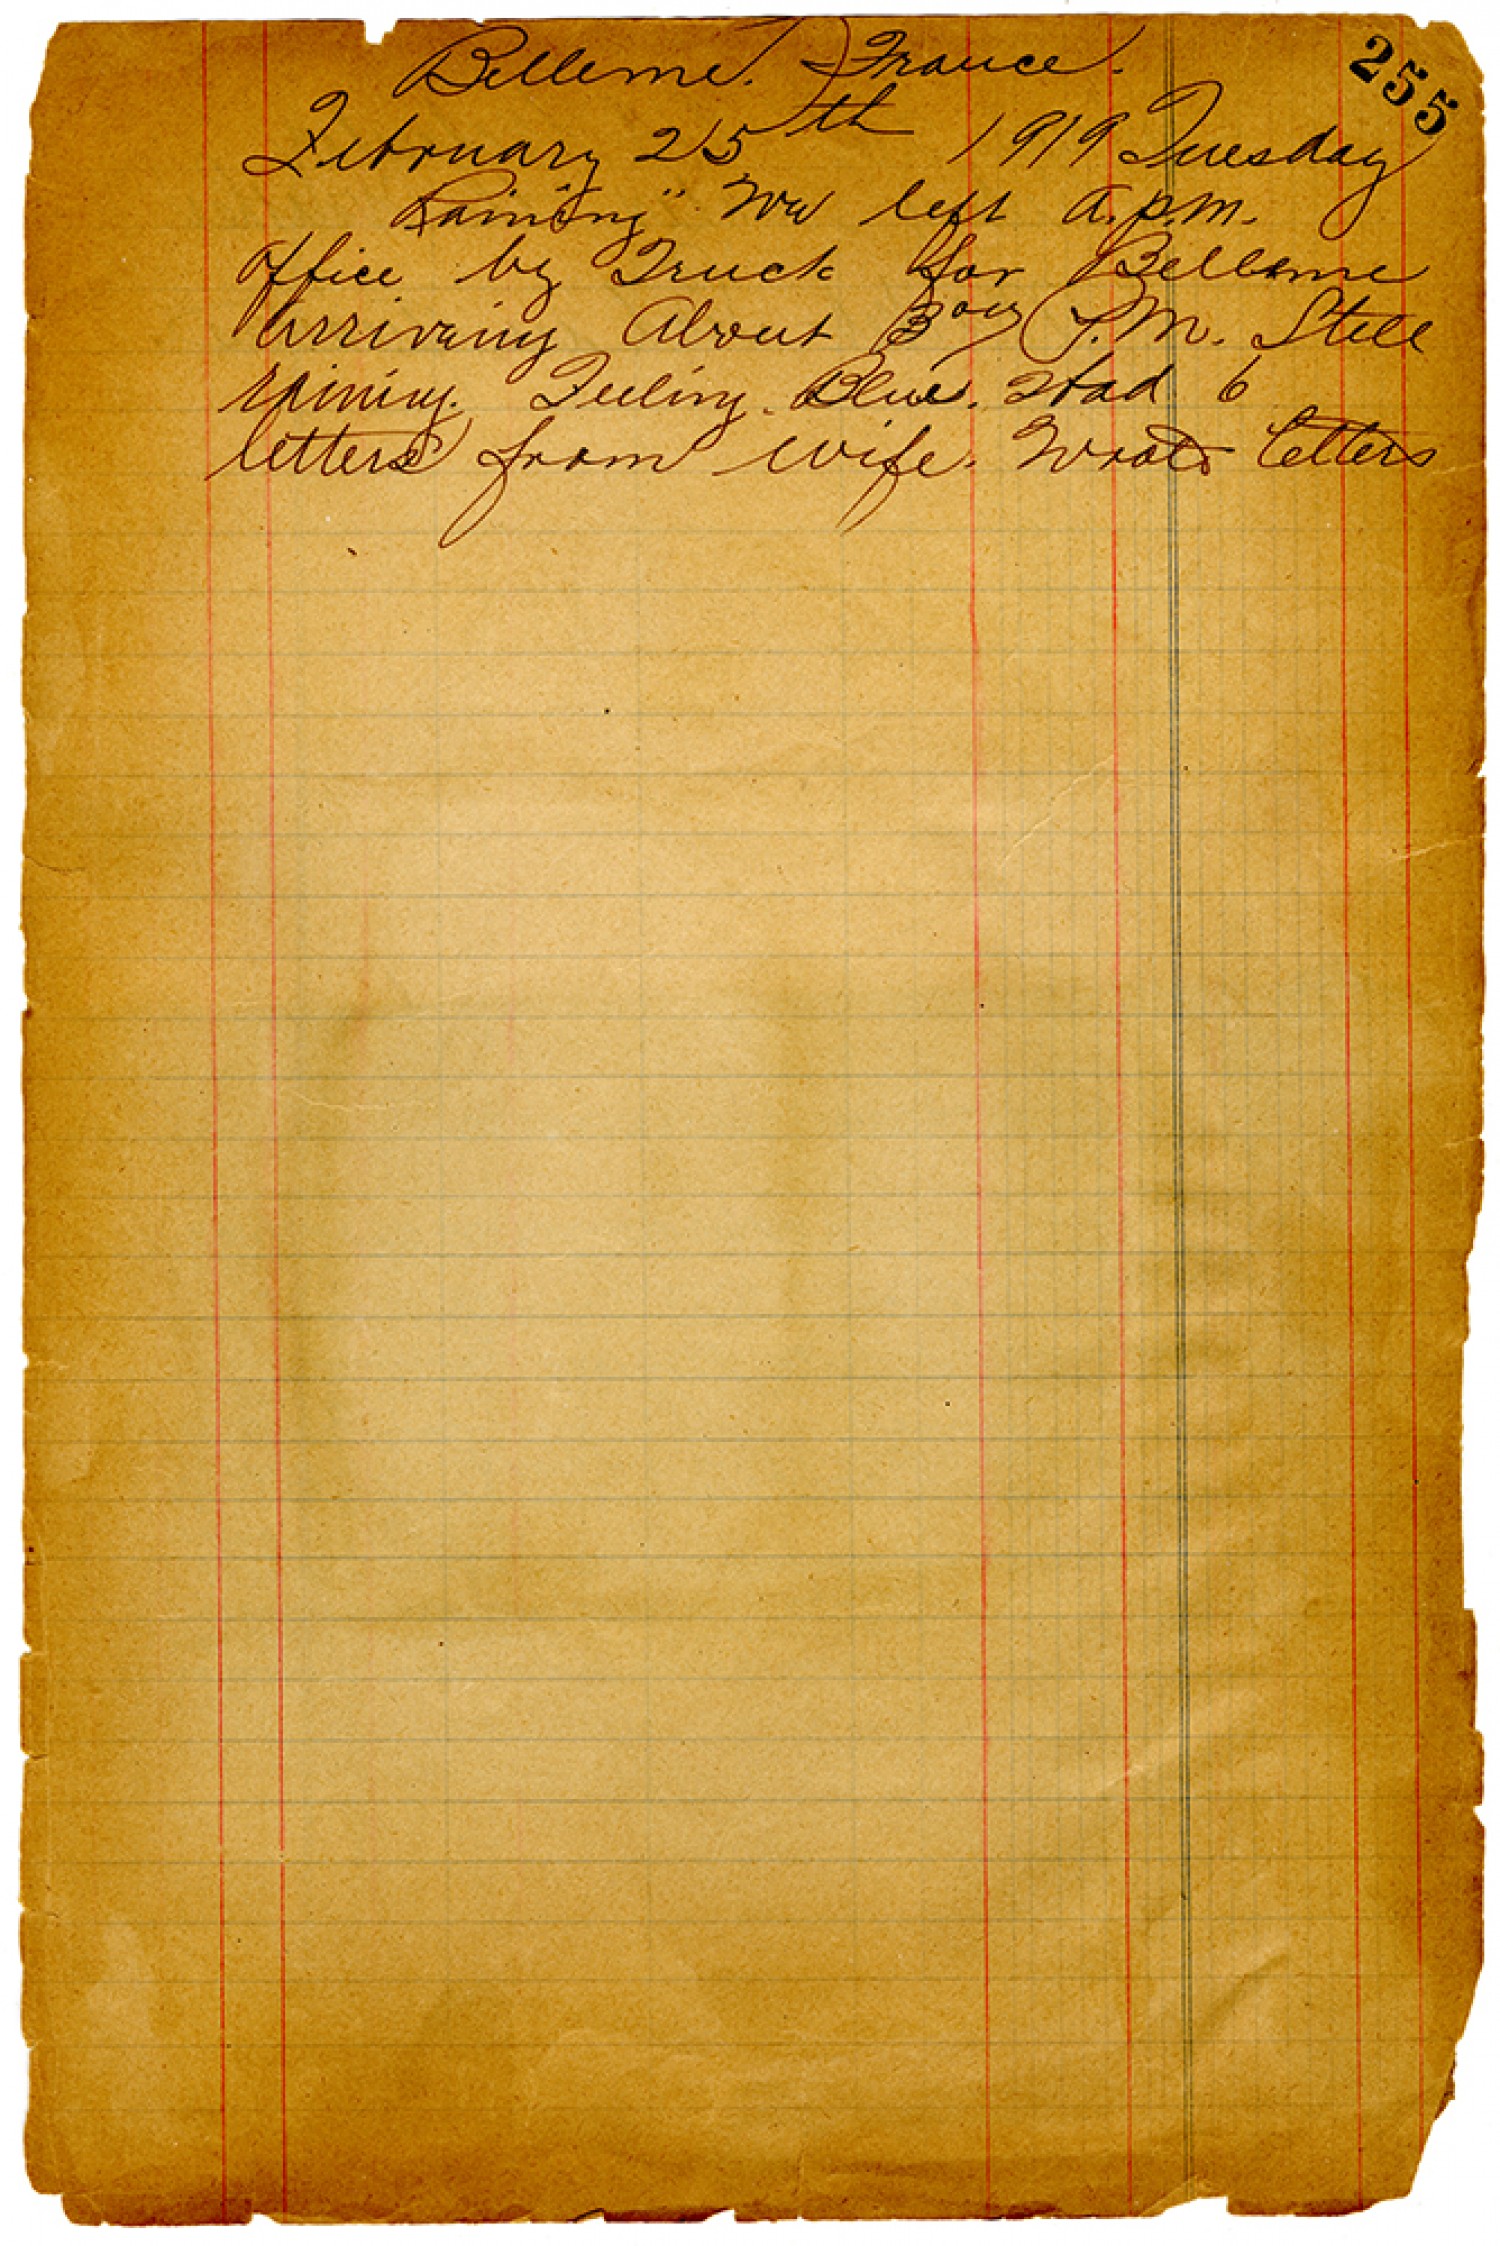 255
Belleme. France.
February 25th 1919 Tuesday
"Raining" We left A.P.M.
Office by Truck for Belleme
Arriving About 3oey P.M. Still
raining. Feeling Blue. Had 6
letters from wife. Wrote letters